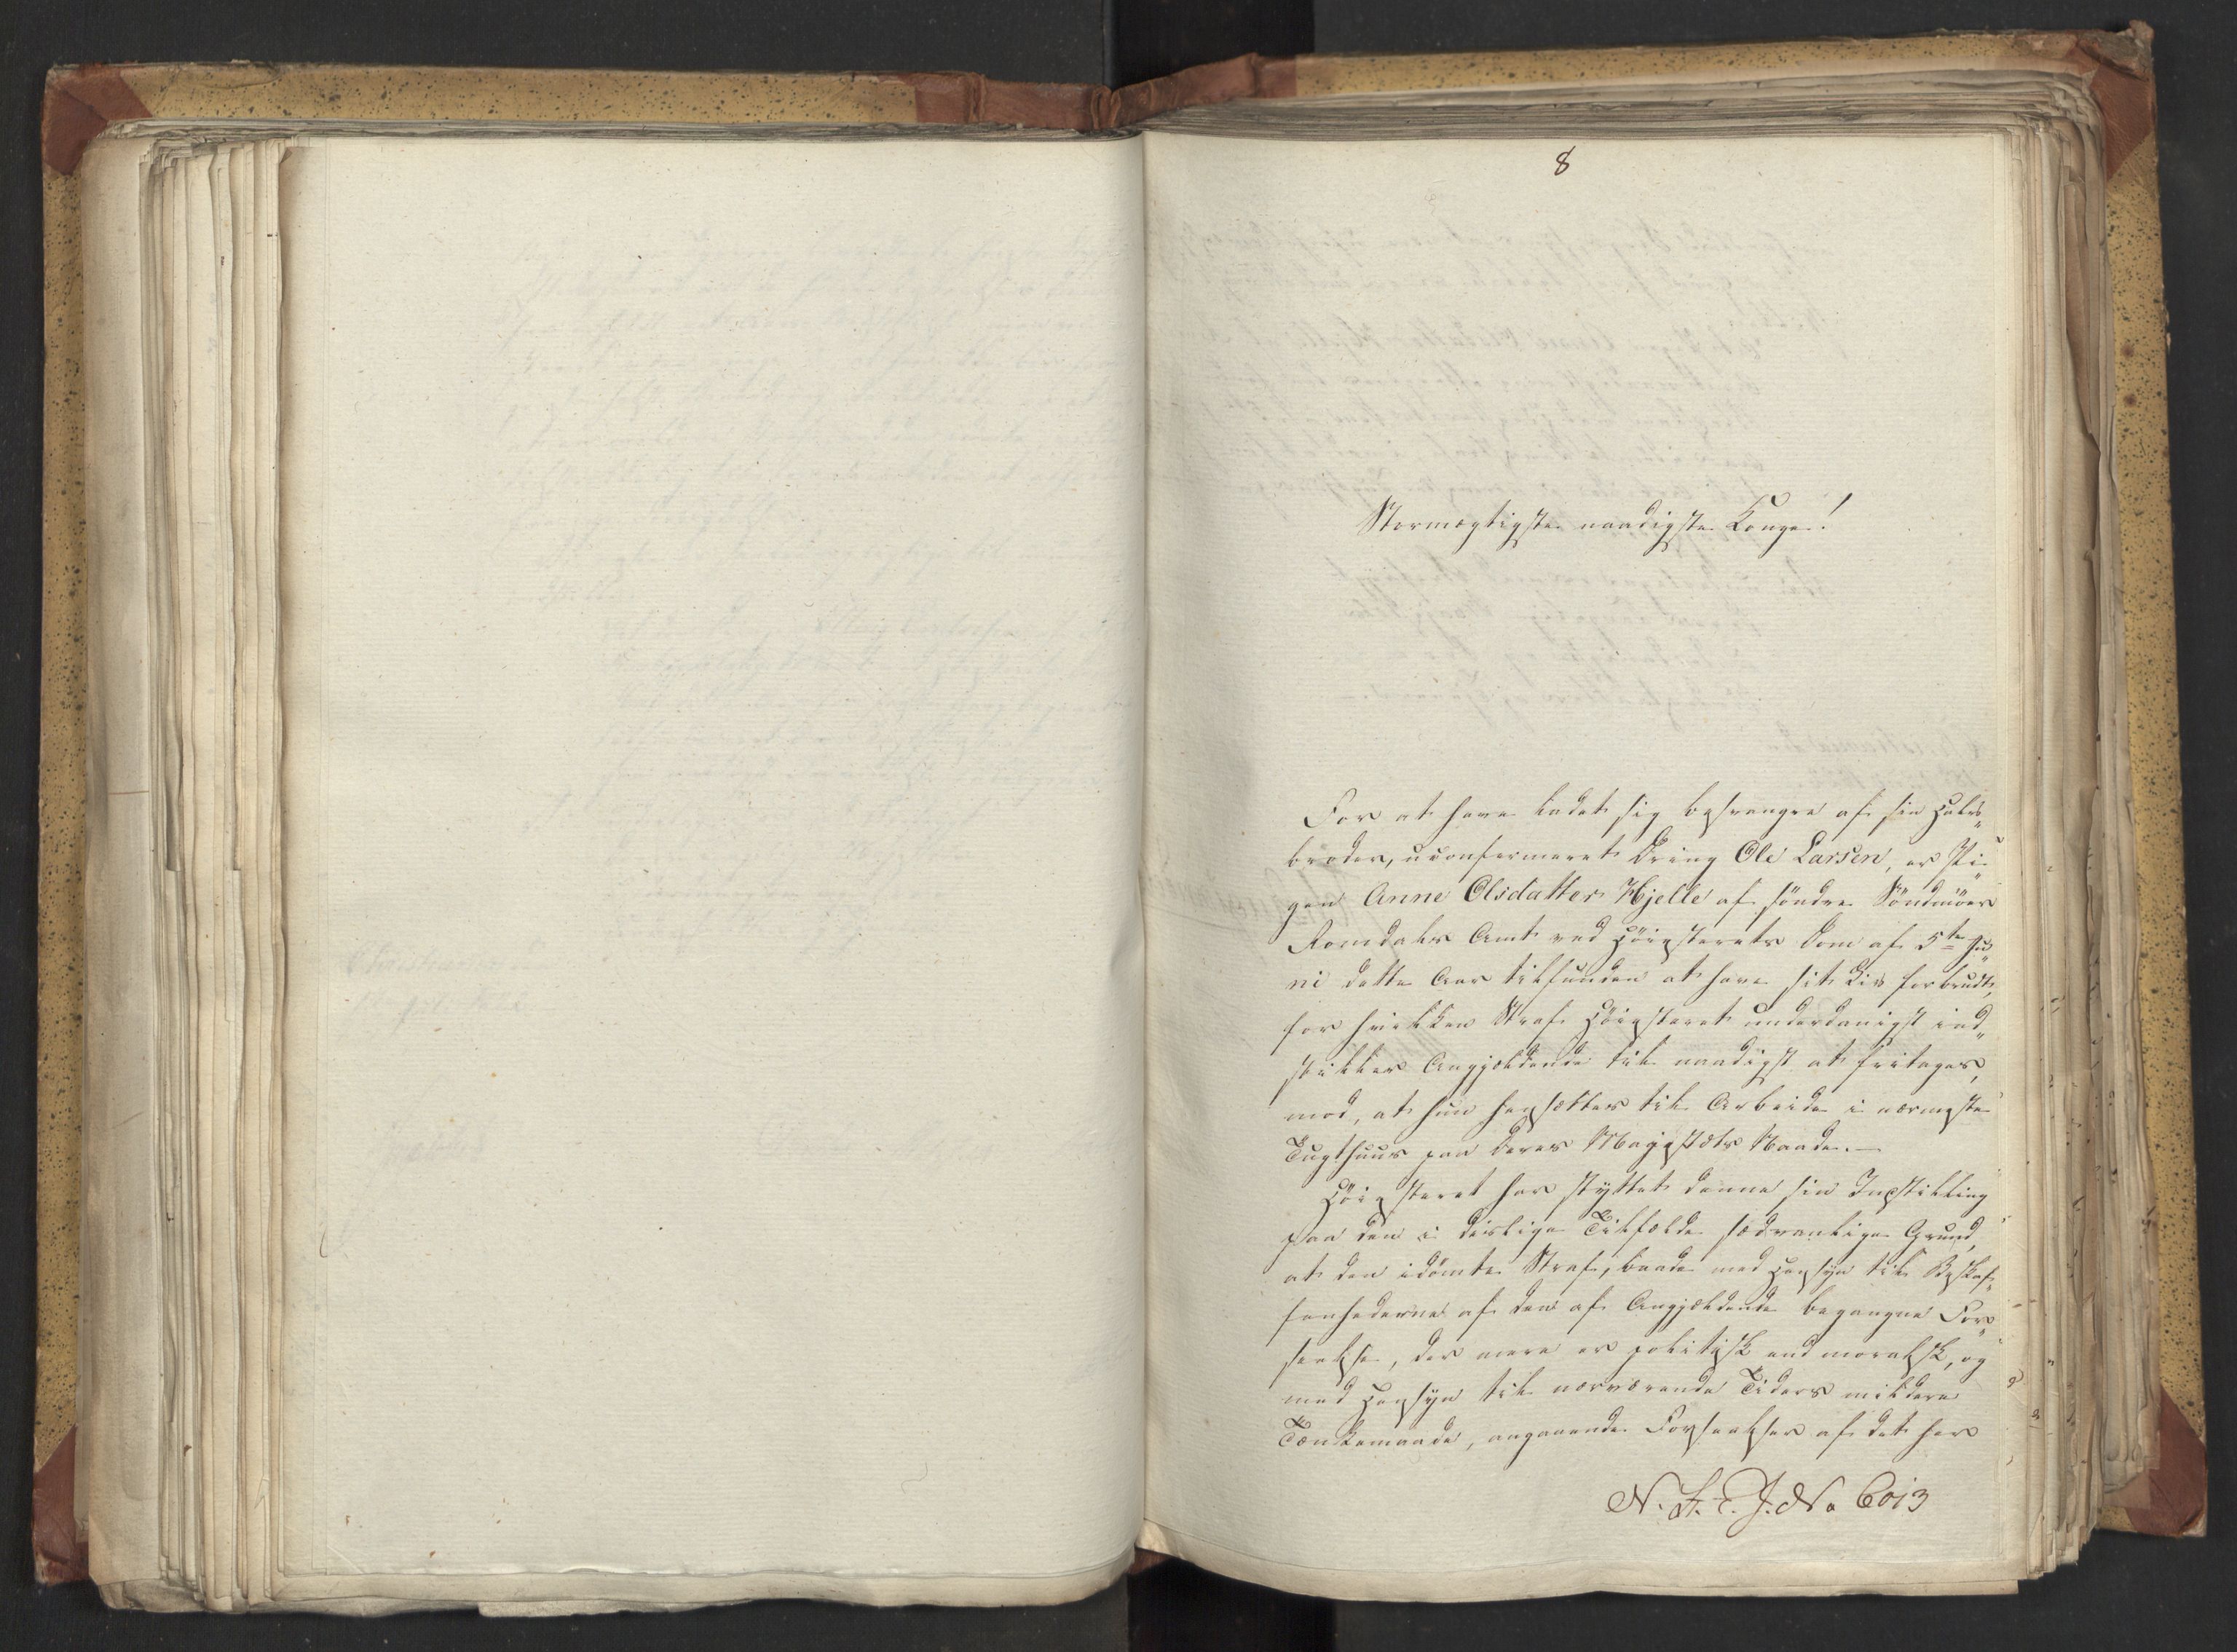 8
Stormægtigste naadigste Konge!
For at have ladet sig besvangre af sin Halv„
broder, uconfirmeret Dreng Ole Larsen, er Pi„
gen Anne Olsdatter Hjelle af søndre Söndmöer
Romsdals Amt ved Höiesterets Dom af 5te Ju„
ni dette Aar tilfunden at have sit Liv forbrudt,
for hvilken Straf Höiesteret underdanigst ind„
stiller Angjeldende til naadigst at fritages,
mod, at hun hensættes til Arbeide i nærmeste
Tugthuus paa Deres Majestæts Naade.—
Höiesteret har støttet denne sin Indstilling
paa den i deslige Tilfælde sædvanlige Grund,
at den idömte Straf, baade med Hensyn til Beskaf„
fenhederne af den af Angjeldende begangne For„
seelse, der mere er politisk end moralsk, og
med Hensyn til nærværende Tiders mildere
Tænkemaade, angaaende Forseelser af det her
No 6013